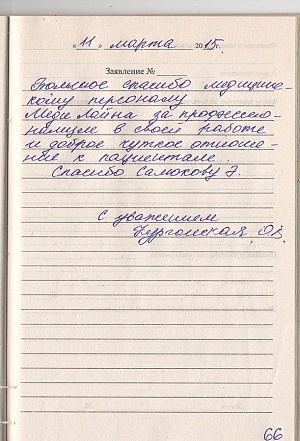 «11» марта 2015г.
Заявление №
Большое спасибо медицинс-
кому персоналу
Меди Лайна за профессио-
нализм в своей работе
и доброе чуткое отноше-
ние к пациентам.
Спасибо Самокову Э.
С уважением
О.В.
66